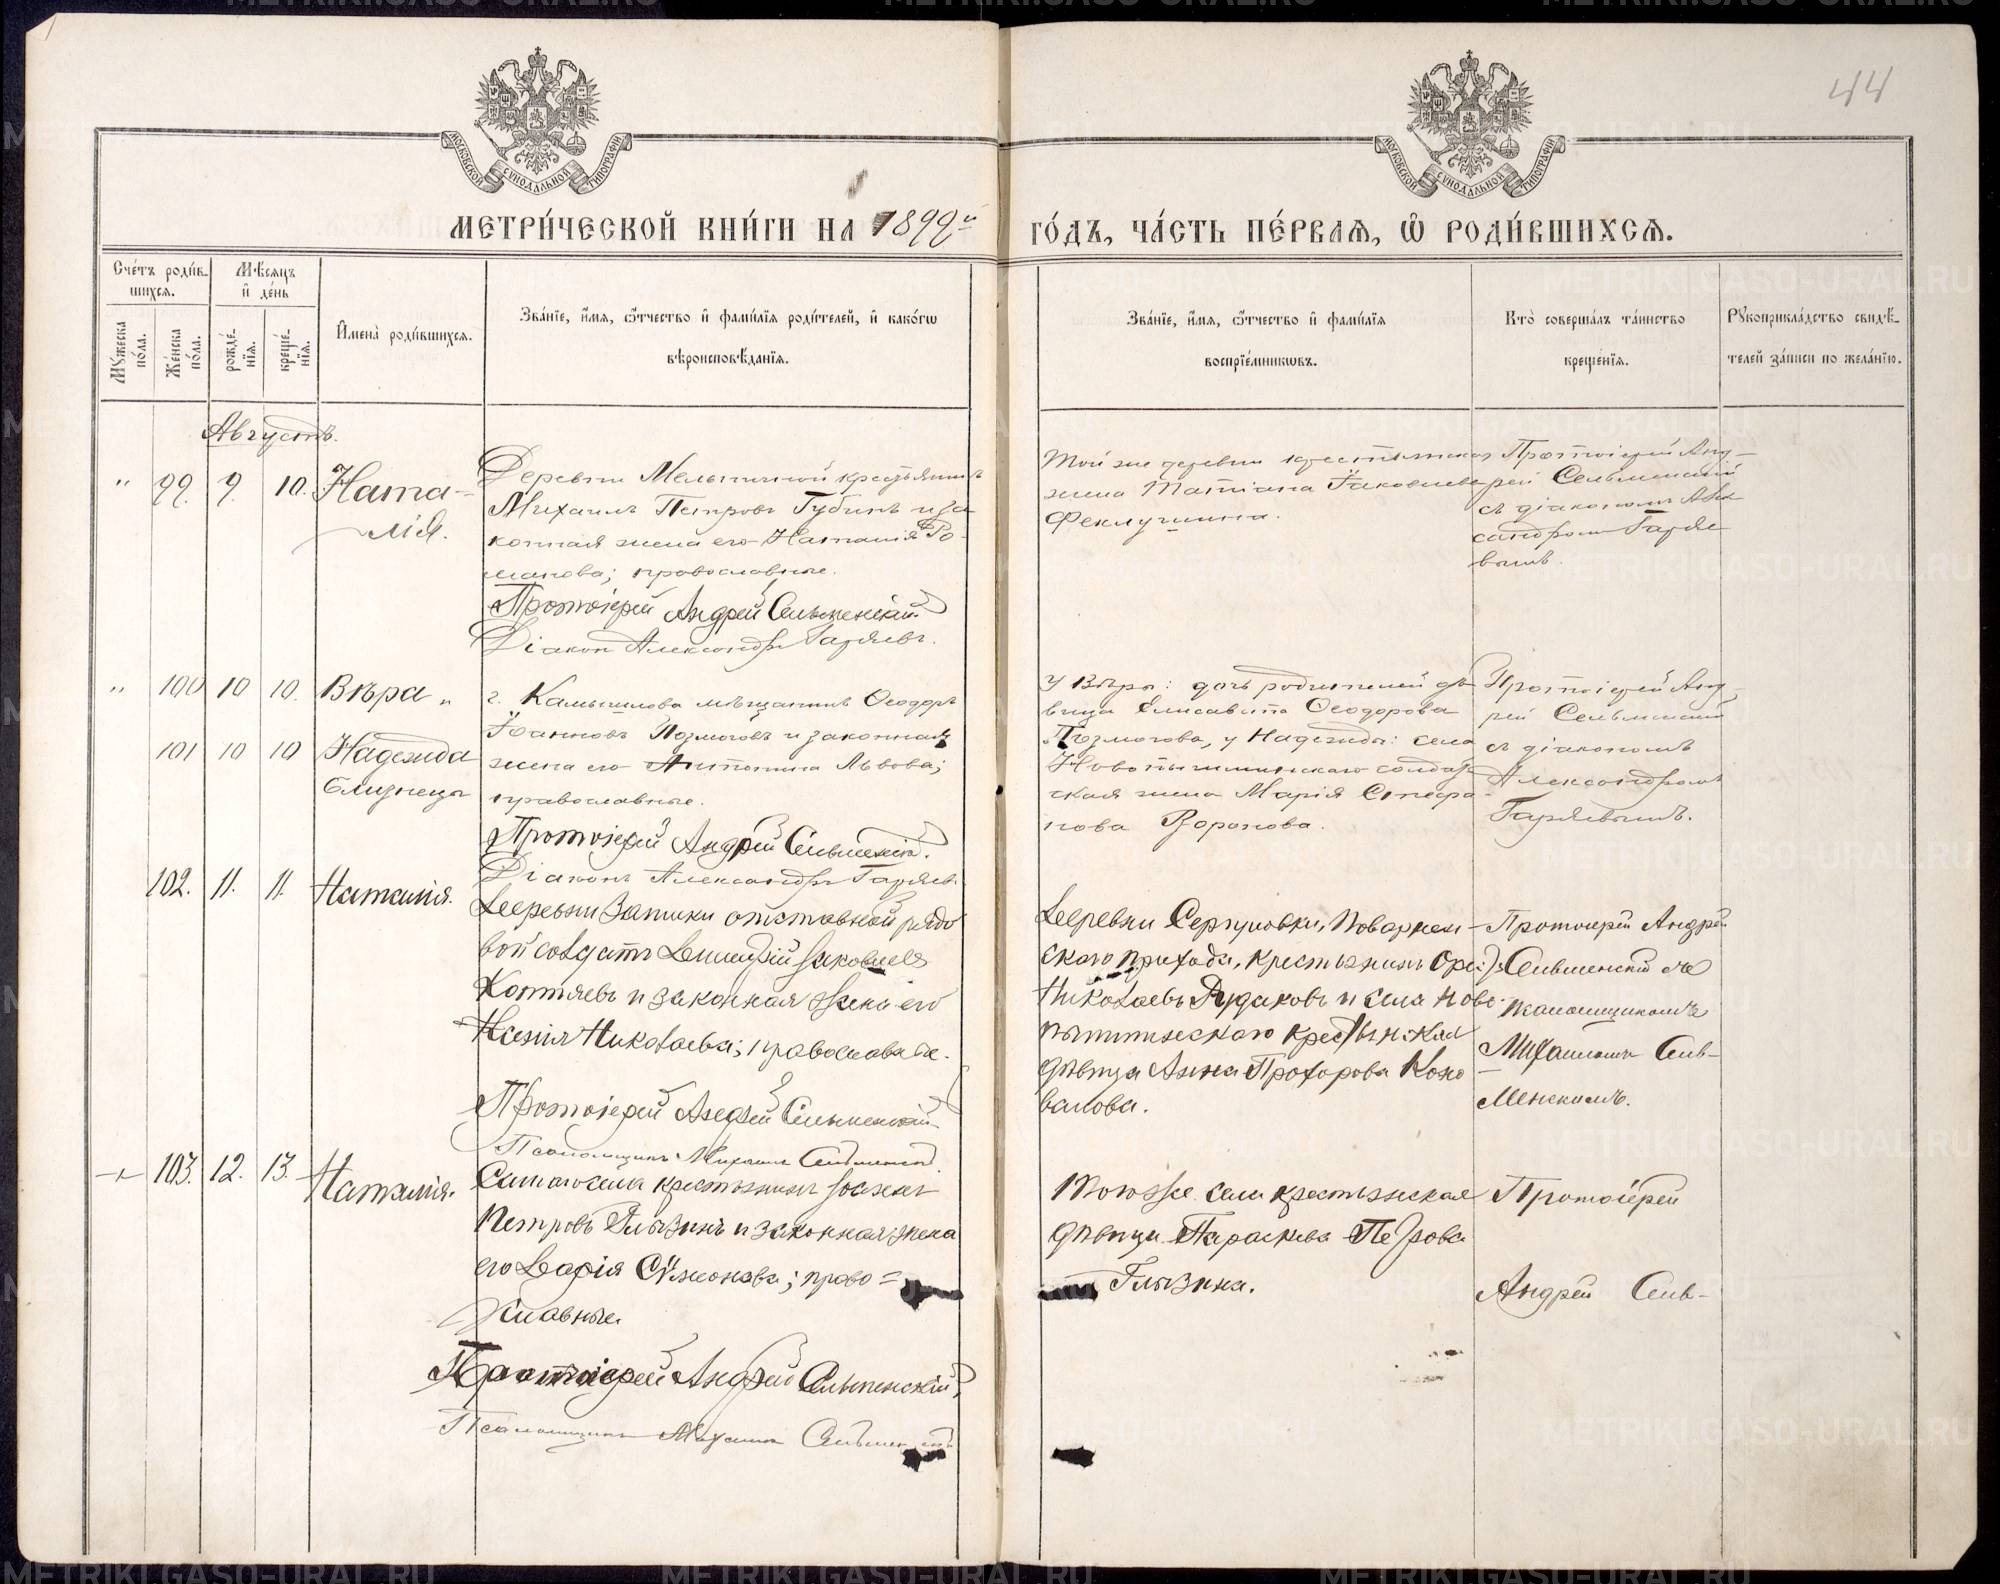 44
МОСКОВСКОЙ СѴНОДАЛЬНОЙ ТИПОГРАФІИ
МОСКОВСКОЙ СѴНОДАЛЬНОЙ ТИПОГРАФІИ
МЕТРИ́ЧЕСКОЙ КНИ́ГИ НА 1899й ГО́ДЪ, ЧА́СТЬ ПЕ́РВАѦ, Ѡ҆ РОДИ́ВШИХСѦ.
Сче́тъ роди́в-
шихсѧ.
Мꙋ́жеска по́ла.
Же́нска по́ла.
Мѣ́сяцъ
и҆ де́нь
рожде́нїѧ.
креще́нїѧ.
И҆мена̀ роди́вшихсѧ.
Зва́нїе, и҆́мѧ, ѻ҆́тчество и҆ фами́лїѧ роди́телей, и҆ како́гѡ
вѣроисповѣ́данїѧ.
Зва́нїе, и҆́мѧ, ѻ҆́тчество и҆ фами́лїѧ
воспрїе́мникѡвъ.
Кто̀ соверша́лъ та́инство
креще́нїѧ.
Рꙋкоприкла́дство свидѣ́-
телей за́писи по жела́нїю.
Августъ.
" 99. 9. 10. Ната-
лія.
Деревни Мельничной крестьянинъ
Михаилъ Петровъ Губинъ и за
конная жена его Наталія Ро-
манова; православные.
Протоіерей Андрей Сельменскій
Діаконъ Александръ Гаряевъ.
Той же деревни крестьянская
жена Татіана Іаковлева
Феклушина.
Протоіерей Анд-
рей Сельменскій
съ діакономъ Алек
сандромъ Гаряе
вымъ.
" 100 10 10. Вѣра "
101 10 10 Надежда
близнецы
г. Камышлова мѣщанинъ Ѳеодоръ
Іоанновъ Позмоговъ и законная
жена его Антонина Львова;
православные.
Протоіерей Андрей Сельменскій.
Діаконъ Александръ Гаряевъ.
У Вѣры: дочь родителей дѣ
вица Елисавета Ѳеодорова
Позмогова, у Надежды: села
Новопышминскаго солдат
ская жена Марія Стефа-
нова Воронова.
Протоіерей Анд-
рей Сельменскій
съ діакономъ
Александромъ
Гаряевымъ.
102. 11. 11. Наталія.
Деревни Заимки отставной рядо
вой солдатъ Димитрій Іаковлевъ
Коптяевъ и законная жена его
Ксенія Николаева; православные.
Протоіерей Андрей Сельменскій
Псаломщикъ Михаилъ Сельменскій
Деревни Сергуловки, Поварнен-
скаго прихода, крестьянинъ
Николаевъ Рудаковъ и села Ново-
пышминскаго крестьянская
дѣвица Анна Прохорова Коно
валова.
Протоіерей Андрей
Сельменскій съ
псаломщикомъ
Михаиломъ Сель-
менскимъ.
103. 12. 13. Наталія.
Самаго села крестьянинъ Іоаннъ
Петровъ Глызинъ и законная жена
его Дарія Сѵмеонова; право=
славные.
Протоіерей Андрей Сельменскій,
Псаломщикъ Михаилъ Сельменскій
Того же села крестьянская
дѣвица Параскева Петрова
Глызина.
Протоіерей
Андрей Сель-
METRIKI.GASO-URAL.RU